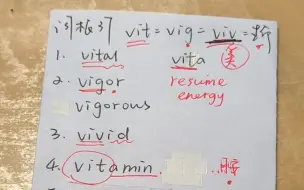 词根词 vit = vig = viv =
1. vital vita 类
2. vigor resume
vigorous energy
3. vivid
4. vitamin ... 胺